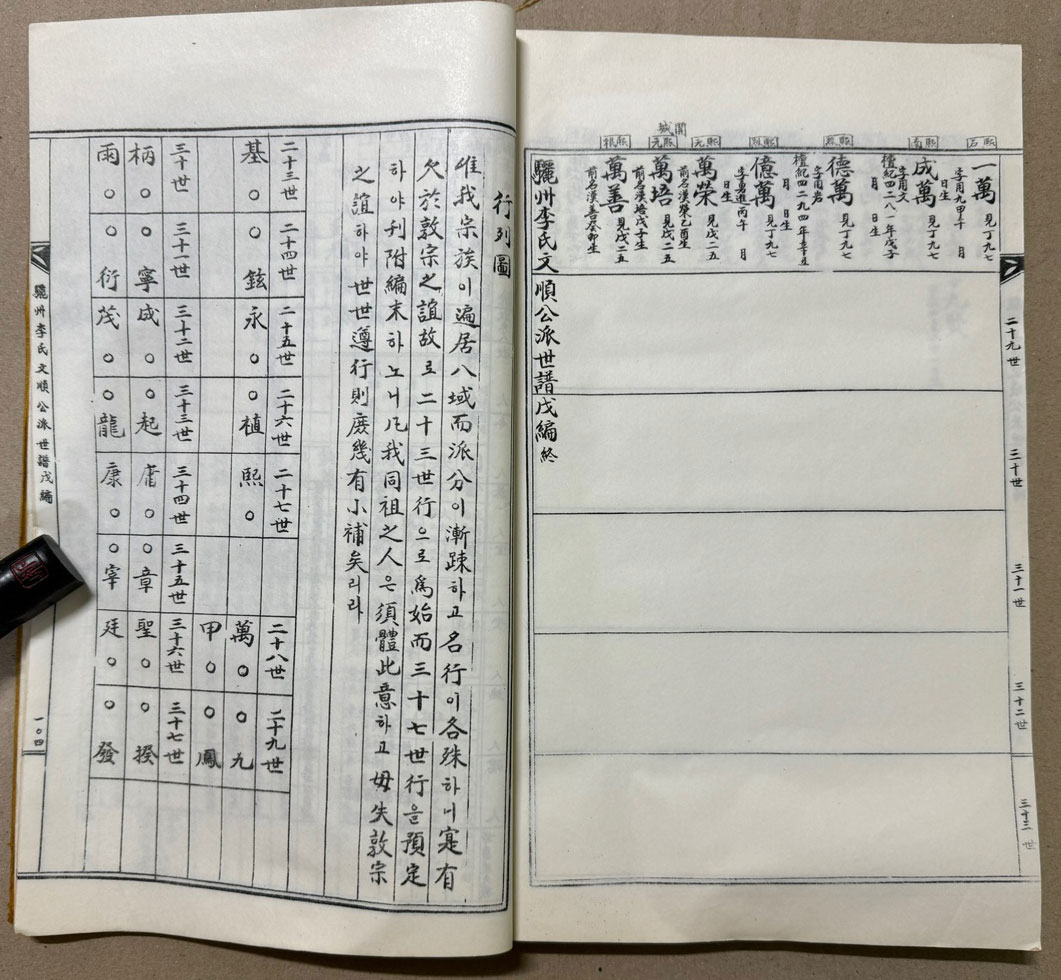 熙石
一萬 見丁九七
字用九甲午 月
日生
熙右
成萬 見丁九七
字用文
檀紀四二八一年戊子
月 日生
德萬 見丁九七
字用岩
檀紀四二九四年辛丑
月 日生
億萬 見丁九七
字勇進丙午 月
日生
熙元
萬榮 見戊二五
前名漢榮乙酉生
開城
熙元
萬培 見戊二五
前名漢培戊子生
熙根
萬善 見戊二五
前名漢善癸卯生
驪州李氏文順公派世譜戊編 終
二十九世
三十世
三十一世
三十二世
三十三世
行列圖
惟我宗族이遍居八域而派分이漸踈하고名行이各殊하니寔有
欠於敦宗之誼故로二十三世行으로爲始而三十七世行을預定
하야刊附編末하노니凡我同祖之人은須體此意하고毋失敦宗
之誼하야世世遵行則庶幾有小補矣리라
二十三世 二十四世 二十五世 二十六世 二十七世 二十八世 二十九世
基○ ○鉉 永○ ○植 熙○ 萬○ ○九
甲○ ○鳳
三十世 三十一世 三十二世 三十三世 三十四世 三十五世 三十六世 三十七世
柄○ ○寧 成○ ○起 庸○ ○章 聖○ ○揆
雨○ ○衍 茂○ ○龍 康○ ○宰 廷○ ○發
驪州李氏文順公派世譜戊編
一○四